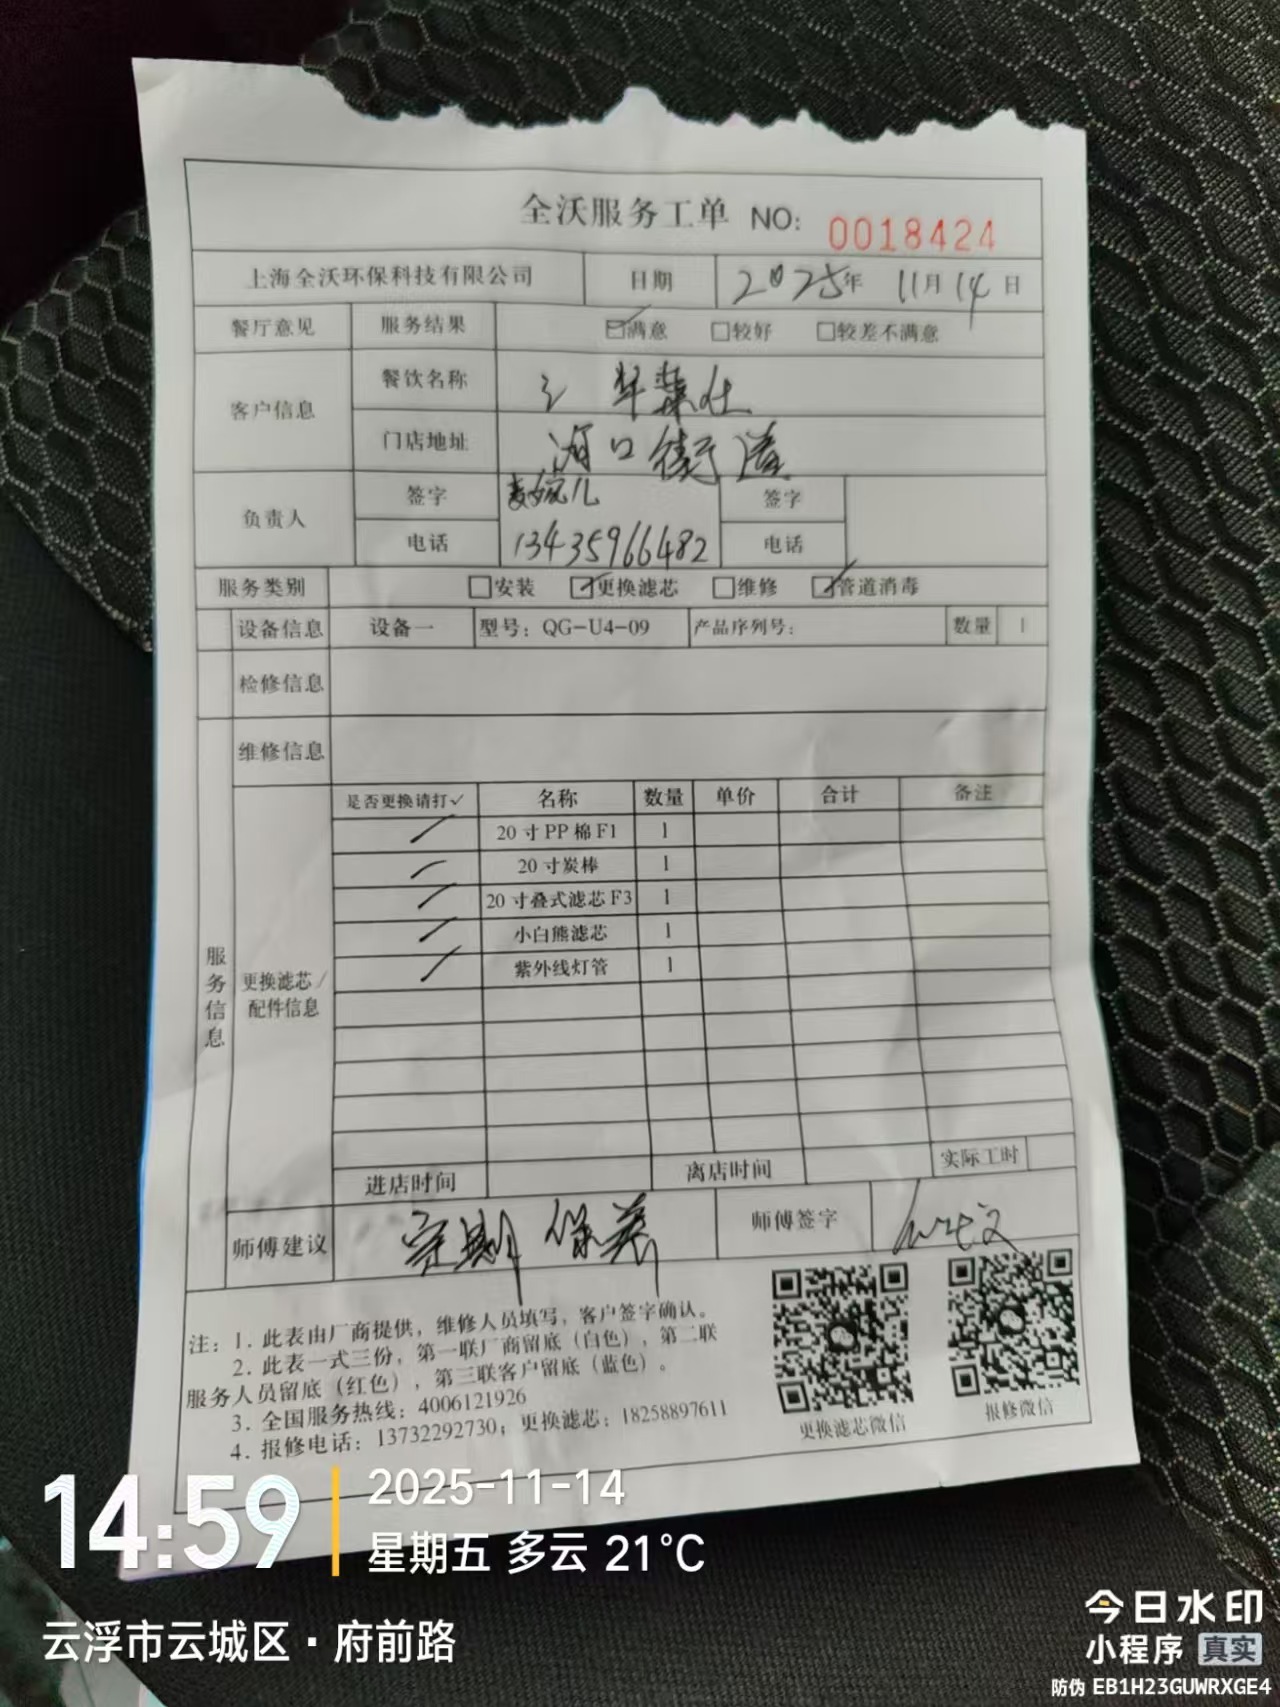 全沃服务工单 NO: 0018424
上海全沃环保科技有限公司 日期 2025年 11月14日
餐厅意见 服务结果 ☑满意 □较好 □较差不满意
客户信息 餐饮名称
门店地址 河口街道
负责人 签字 签字
电话 13435966482 电话
服务类别 □安装 ☑更换滤芯 □维修 ☑管道消毒
设备信息 设备一 型号：QG-U4-09 产品序列号： 数量 1
检修信息
维修信息
服务信息
更换滤芯/配件信息
是否更换请打✓ 名称 数量 单价 合计 备注
20寸PP棉F1 1
20寸炭棒 1
20寸叠式滤芯F3 1
小白熊滤芯 1
紫外线灯管 1
进店时间 离店时间 实际工时
师傅建议 定期 保养 师傅签字
注：1. 此表由厂商提供，维修人员填写，客户签字确认。
2. 此表一式三份，第一联厂商留底（白色），第二联
服务人员留底（红色），第三联客户留底（蓝色）。
3. 全国服务热线：4006121926
4. 报修电话：13732292730；更换滤芯：18258897611
更换滤芯微信 报修微信
14:59
2025-11-14
星期五 多云 21℃
云浮市云城区·府前路
今日水印
小程序 真实
防伪 EB1H23GUWRXGE4